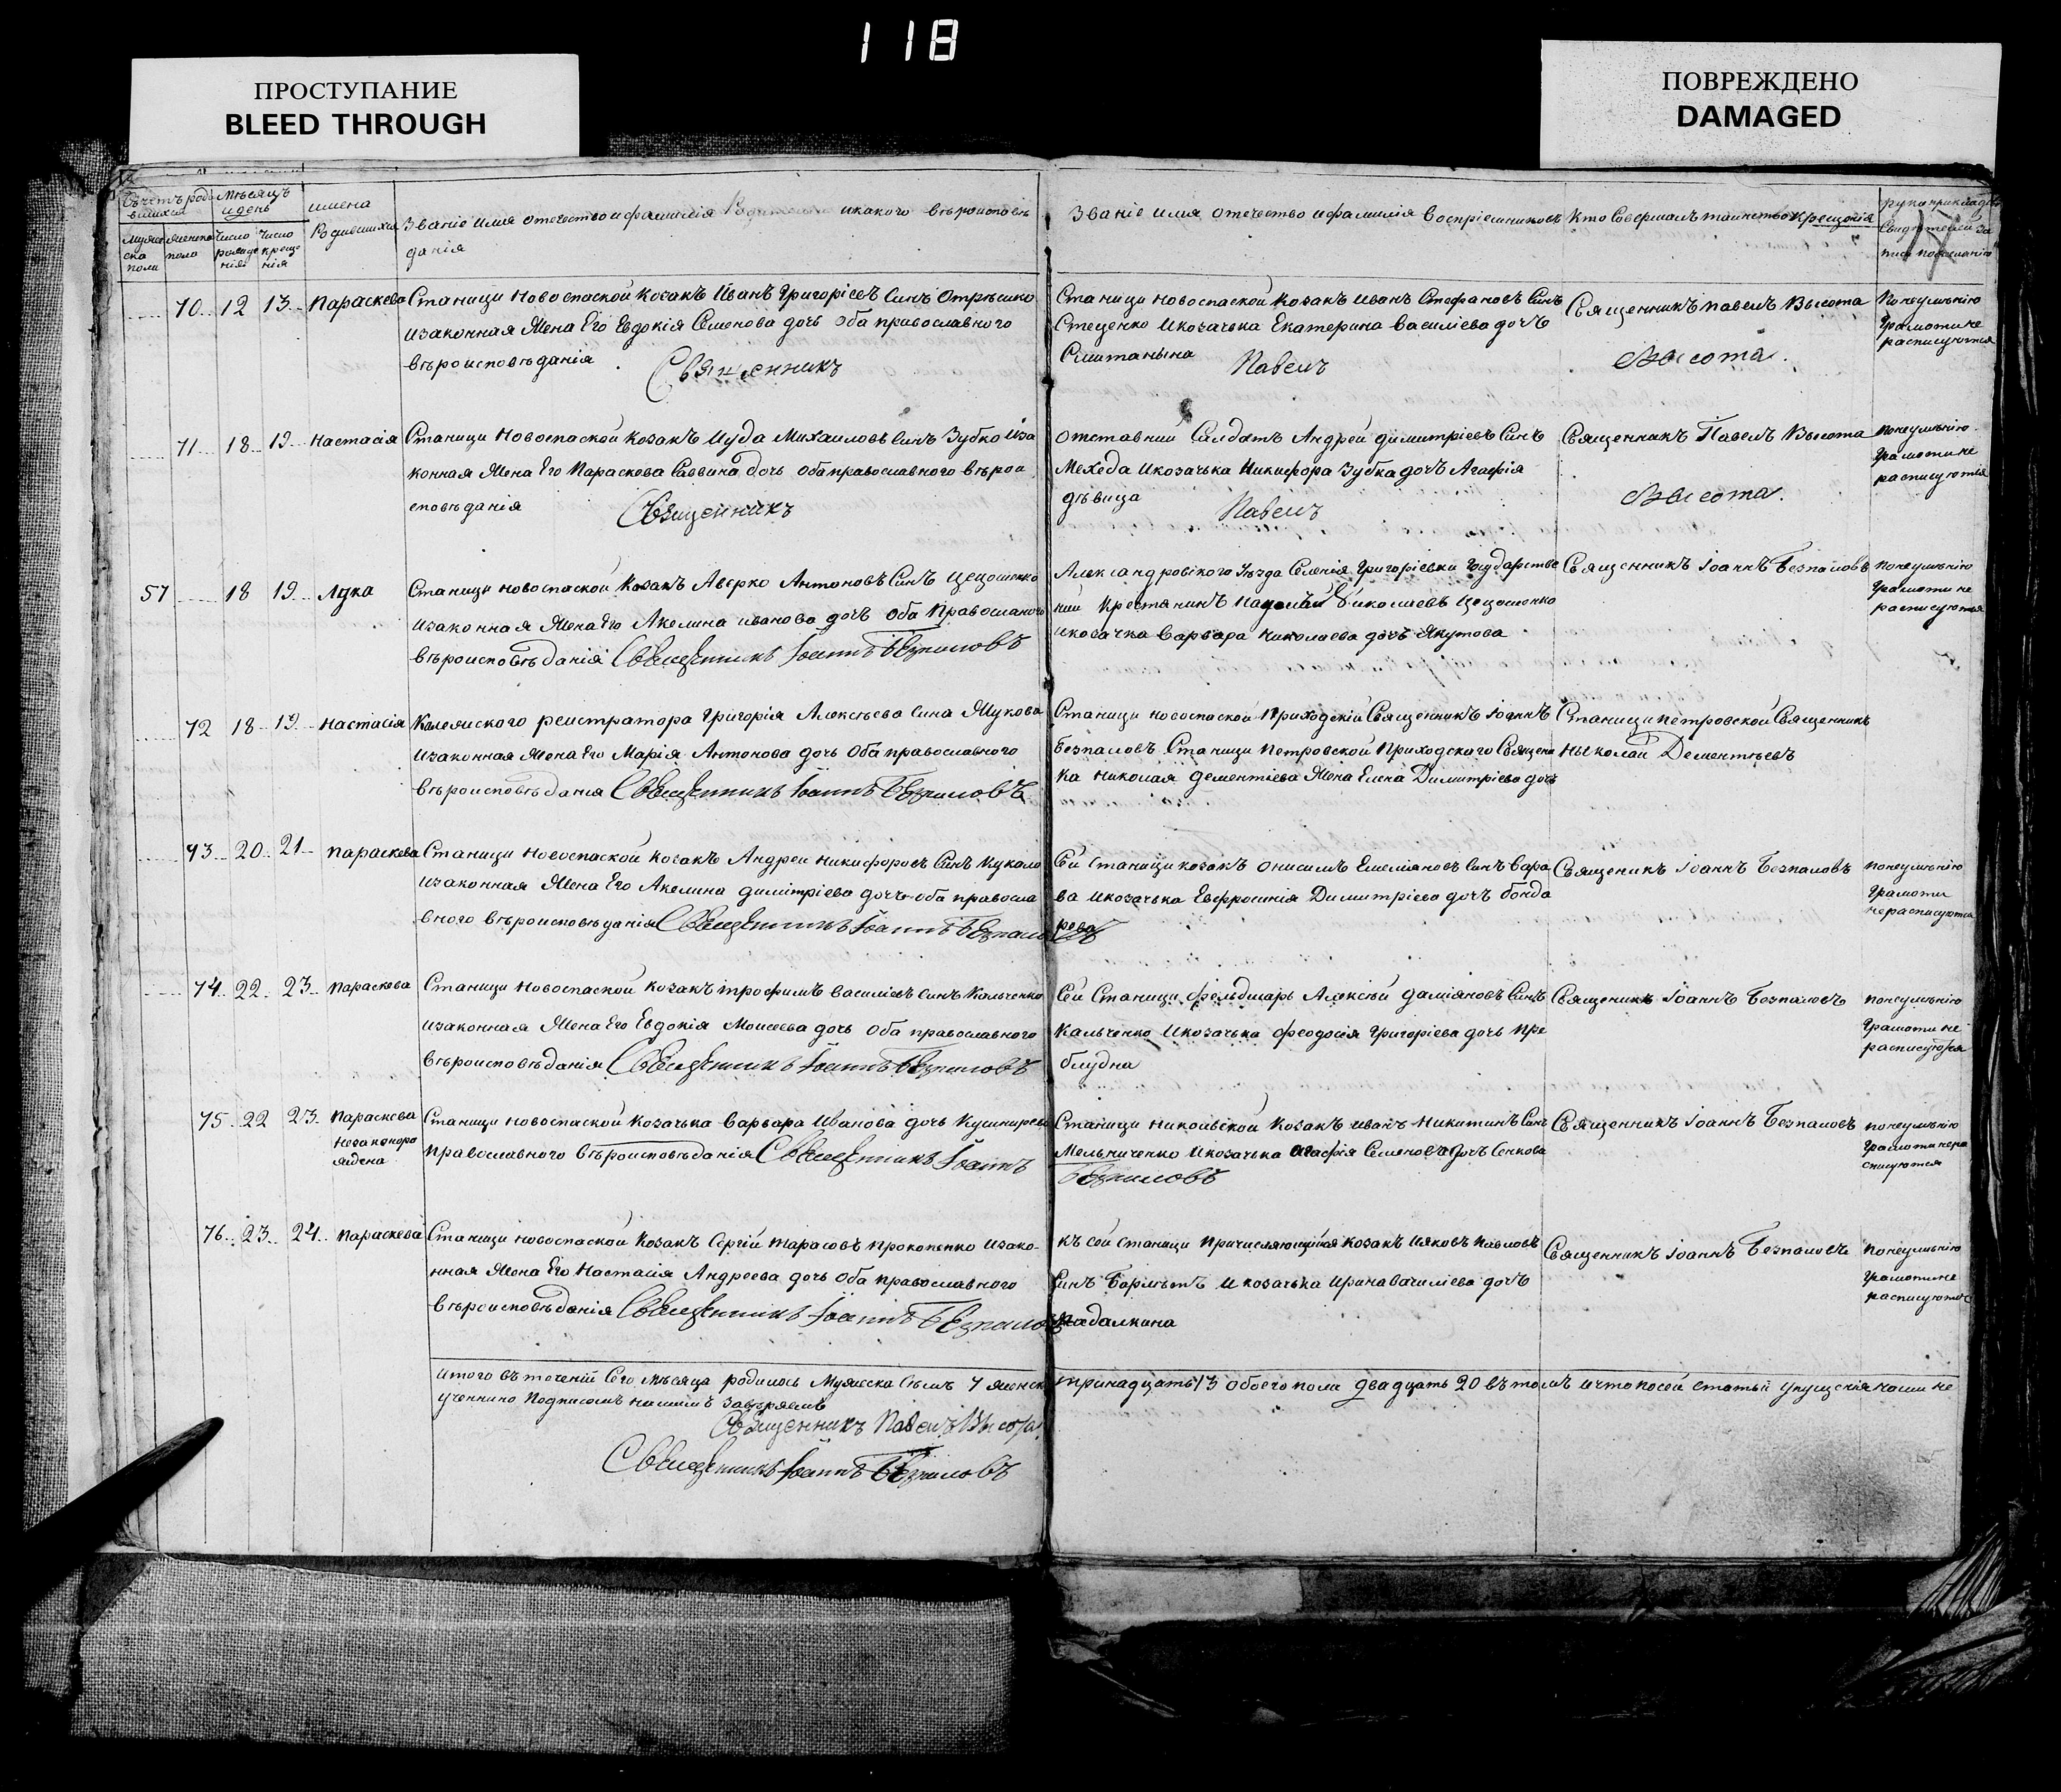 118
ПРОСТУПАНИЕ
BLEED THROUGH
ПОВРЕЖДЕНО
DAMAGED
Мѣсяцъ
и день
имена
Родившихся
Званіе имя отечество и фамилія и какого вѣроисповѣ
данія
Званіе имя отечество и фамилія воспріемниковъ
Кто совершалъ таинство крещенія
Число
рожде
нія
Число
креще
нія
70 12 13 Параскева
Станици Новоспаской Козакъ Иванъ Григоріевъ Синъ Отрѣшко
изаконная Жена Его Евдокія Семенова дочь оба православного
вѣроисповѣданія Священникъ
Станици Новоспаской Козакъ Иванъ Стефановъ Синъ
Стеценко и козачька Екатерина Василіева дочъ
Смитанына Павелъ
Священникъ Павелъ Высота
Высота.
Понеумѣнію
грамоти не
расписуются
71 18 19 Настасія
Станици Новоспаской Козакъ Иуда Михаиловъ Синъ Зубко иза
конная Жена Его Параскова Саввина дочь оба православного вѣрои
сповѣданія Священникъ
Отставний Салдатъ Андрей Димитріевъ Синъ
Мехеда и козачька Никифора Зубка дочъ Агафія
дѣвица Павелъ
Священникъ Павелъ Высота
Высота.
Понеумѣнію
грамоти не
расписуются
57 18 19 Лука
Станици Новоспаской Козакъ Аверко Антоновъ Синъ Цецошенко
изаконная Жена Его Акелина Иванова дочъ оба Православного
вѣроисповѣданія Священникъ Іоаннъ Безпаловъ
Александровского Уѣзда Селенія Григоріевки Государстве
ний Крестянинъ Николаевъ Цецошенко
и козачка Варвара Николаева дочь Якутова
Священникъ Іоаннъ Безпаловъ
понеумѣнію
грамоти не
расписуются
72 18 19 Настасія
Колежского реистратора Григорія Алексѣева сина Жукова
изаконная Жена Его Марія Антонова дочь оба православного
вѣроисповѣданія Священникъ Іоаннъ Безпаловъ
Станици Новоспаской Приходскій Священникъ Іоаннъ
Безпаловъ Станици Петровской Приходского Священи
ка Николая Дементіева Жена Елена Димитріева дочь
Станици Петровской Священникъ
Николай Дементѣевъ
73 20 21 Параскева
Станици Новоспаской Козакъ Андрей Никифоровъ Синъ Кукало
изаконная Жена Его Акелина Димитріева дочъ оба правосла
вного вѣроисповѣданія Священникъ Іоаннъ Безпаловъ
Сей Станици козакъ Онисимъ Емеліановъ синъ Вара
ва и козачька Евфросинія Димитріева дочъ Бонда
рева
Священикъ Іоаннъ Безпаловъ
понеумѣнію
грамоти
нерасписуются
74 22 23 Параскева
Станици Новоспаской Козакъ Трофимъ Василіевъ синъ Кальченко
изаконная Жена Его Евдокія Моисеева дочь оба православного
вѣроисповѣданія Священникъ Іоаннъ Безпаловъ
Сей Станици фельдшаръ Алексѣй Даміяновъ Синъ
Кальченко и козачька Феодосія Григоріева дочь Пре
блудна
Священикъ Іоаннъ Безпаловъ
понеумѣнію
грамоти не
расписуются
75 22 23 Параскева
незаконоро
ждена
Станици Новоспаской Козачька Варвара Иванова дочь Кушнирева
православного вѣроисповѣданія Священникъ Іоаннъ
Станици Никольской Козакъ Иванъ Никитинъ Синъ
Мельниченко и козачька Агафія Семенова дочъ Сенкова
Безпаловъ
Священникъ Іоаннъ Безпаловъ
понеумѣнію
грамоти нера
списуются
76 23 24 Параскева
Станици Новоспаской Козакъ Сергій Тарасовъ Прокопенко изако-
нная Жена Его Настасія Андреева дочь оба православного
вѣроисповѣданія Священникъ Іоаннъ Безпаловъ
Къ сей Станици Причисляющійся Козакъ Ияковъ Павловъ
синъ и козачька Ирина Василіева дочъ
Падалкина
Священникъ Іоаннъ Безпаловъ
Понеумѣнію
грамоти не
расписуются
Итого въ теченіи Сего Мѣсяца родилось Мужеска семь 7 женск тринадцать 13 обоего пола двадцать 20 въ томъ и что по сей статьи упущенія нами не
ученнено Подписомъ нашимъ завѣряемъ
Священникъ Павелъ Высота
Священникъ Іоаннъ Безпаловъ